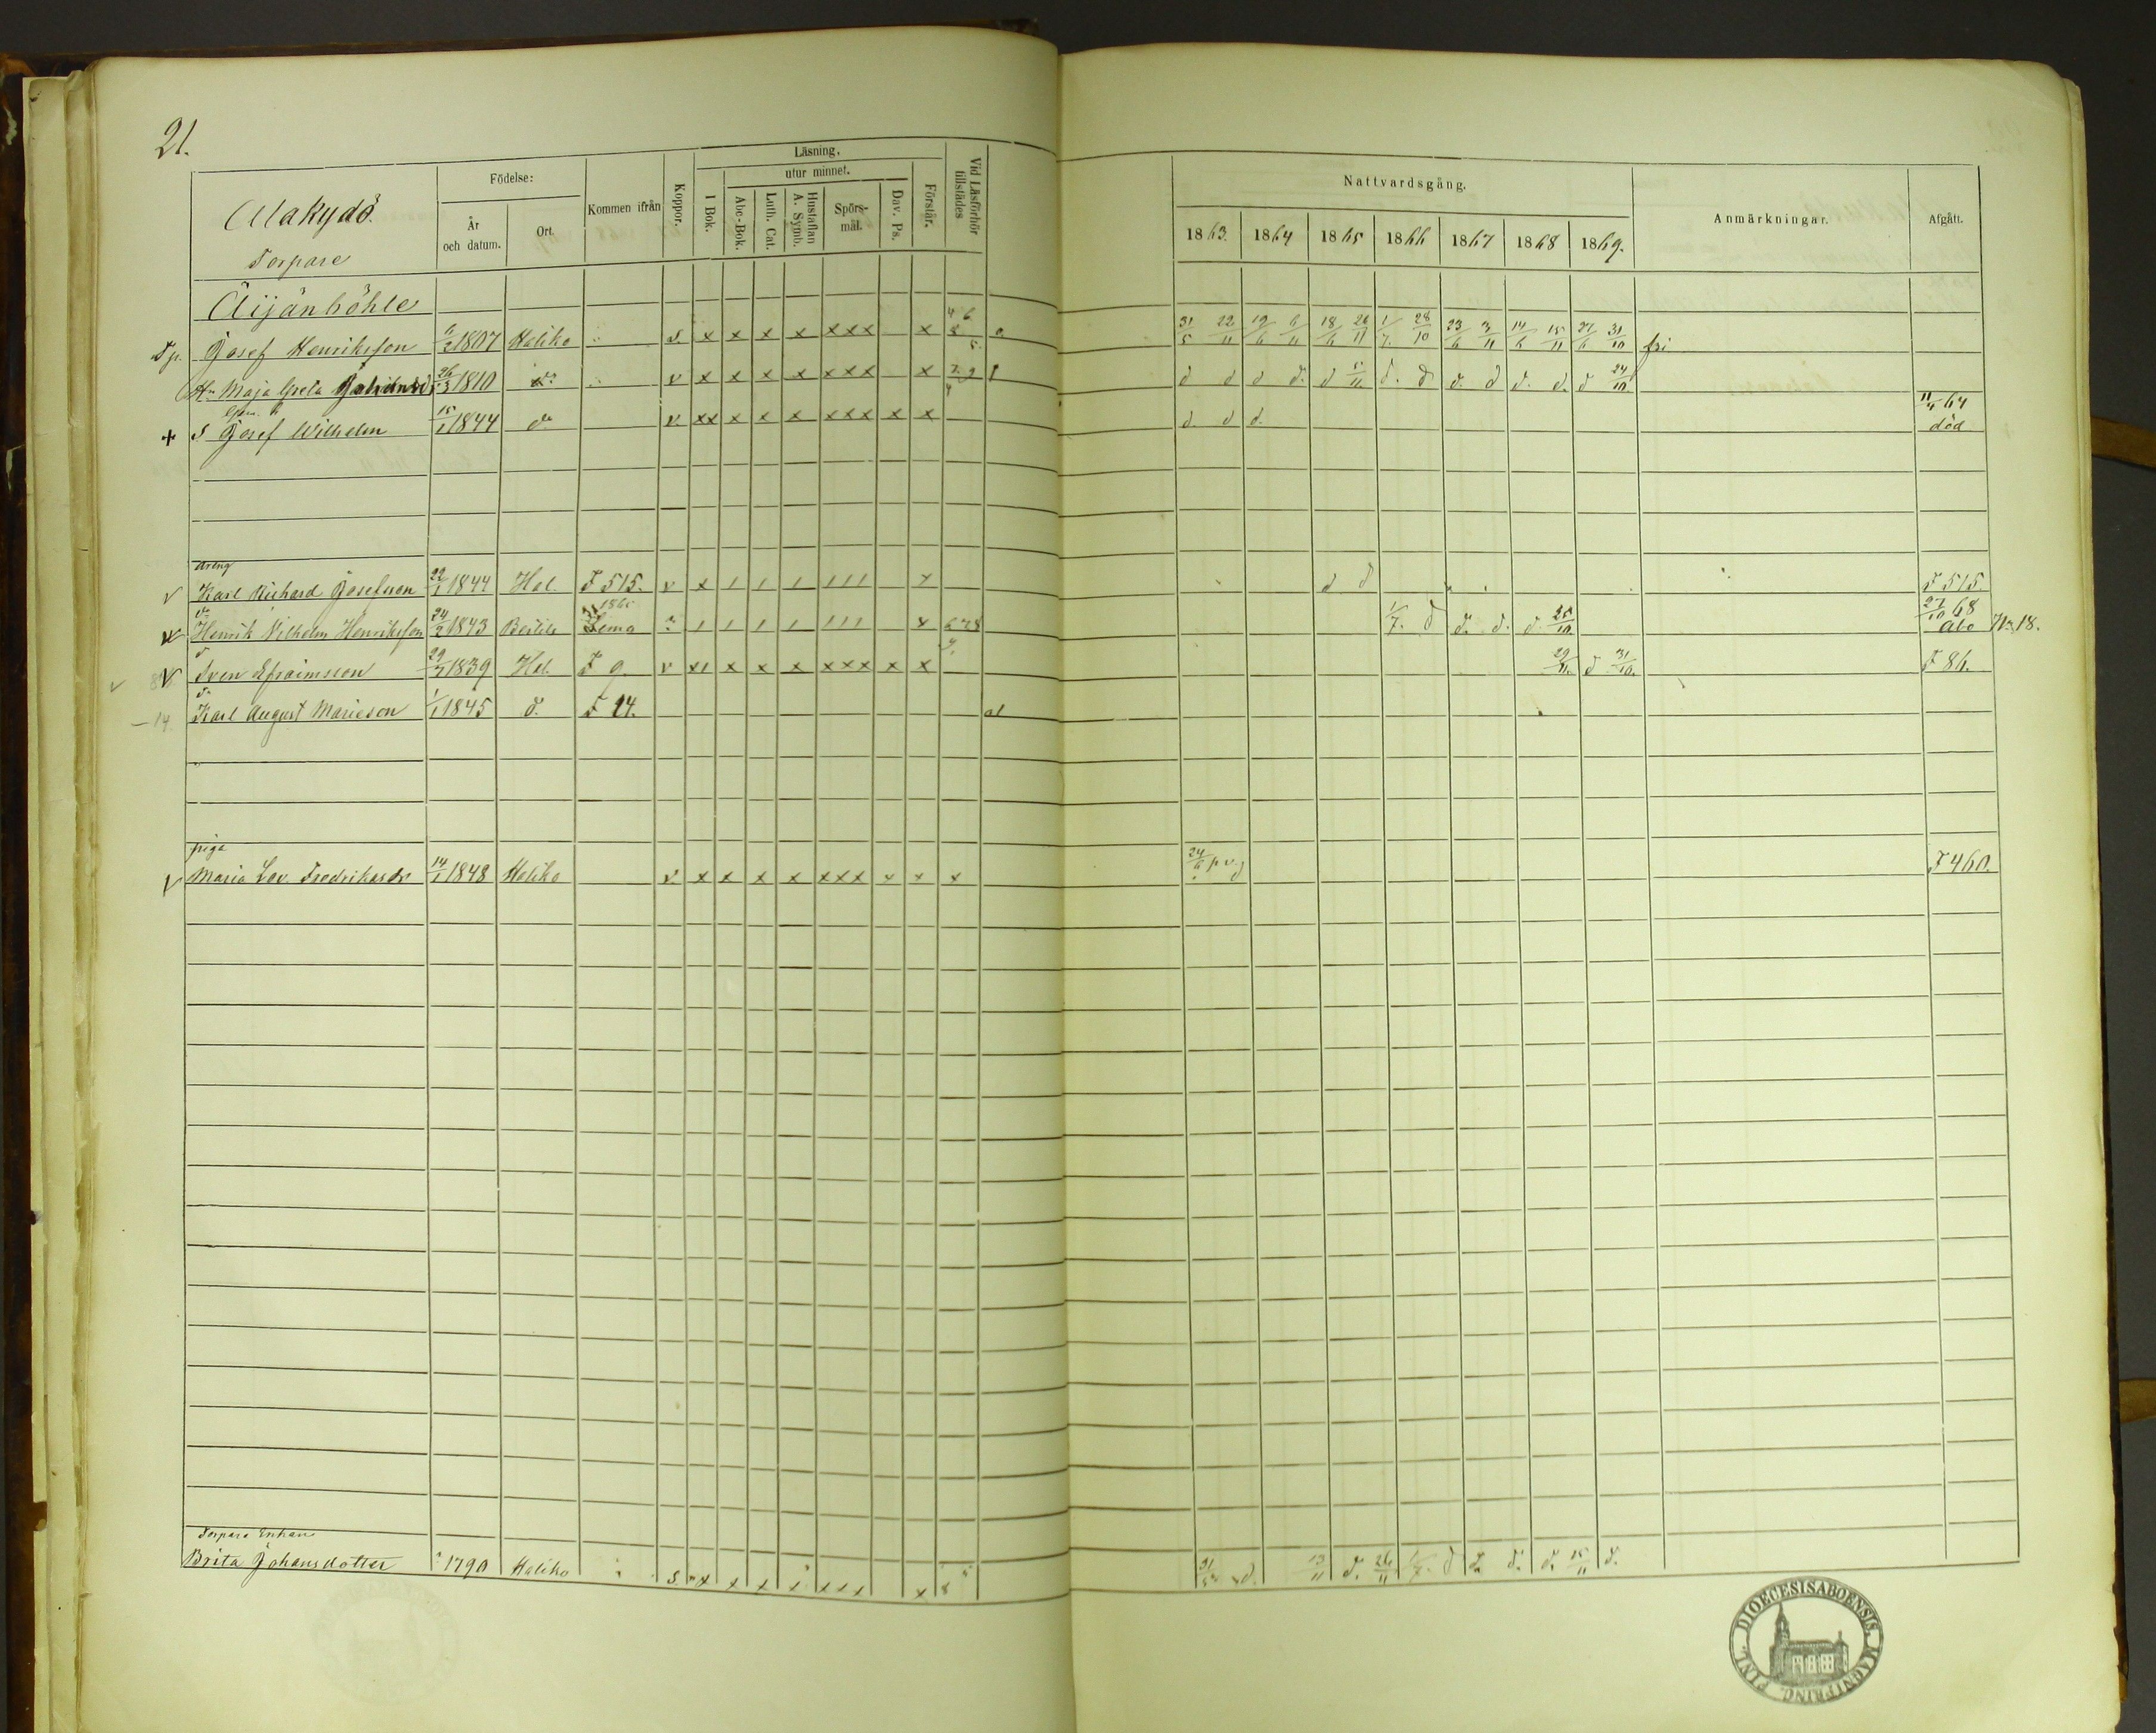 21.
Födelse:
Läsning.
utur minnet.
Alakydö.
Torpare
År och datum.
Ort.
Kommen ifrån
Koppor.
I Bok.
Abc-Bok.
Luth. Cat.
Hustaflan A. Symb.
Spörs-mål.
Dav. Ps.
Förstår.
Vid Läsförhör tillstädes
Nattvardsgång.
1863. 1864 1865 1866 1867 1868 1869.
Anmärkningar.
Afgått.
Äijänhöhle
Tp. Josef Henriksson 6/2 1807 Haliko s x x x x xxx x 31/5 22/11 19/6 6/11 18/6 26/11 1/7. 28/10 23/6 3/11 14/6 15/11 27/6 31/10 fri
Hu Maja Greta 26/3 1810 do v x x x x xxx x d d d d. d 5/11 d. d d. d d. d. d 24/10
+ S Josef Wilhelm 15/1 1844 do v xx x x x xxx x x d d d. 11/4 64 död
dreng
V Karl Richard Josefsson 22/1 1844 Hal. F 515. v x / / / /// x d d F 515.
do Henrik Vilhelm Henriksson 24/2 1843 1865 Lemo / / / / /// x 678 1/7. d d. d. d. 25/10 27/10 68 Åbo No 18.
V do Sven Efraimsson 29/7 1839 Hal. F 9. v x/ x x x xxx x x 29/11. d 31/10. F 86.
- 14 do Karl August Marieson 1/1 1845 d. F 14.
piga
V Maria Lov. Fredriksdr 14/1 1848 Haliko v x x x x xxx x x x 24/6 p v. F 460.
Torpare Enkan
Brita Johansdotter 1790 Haliko s. x x x x xxx x 8 31/5 d. 13/11 d. 26/11 1/7. d d. d. d. 15/11 d.
DIOECESIS ABOENSIS, MAGNI PRINC. FINL.